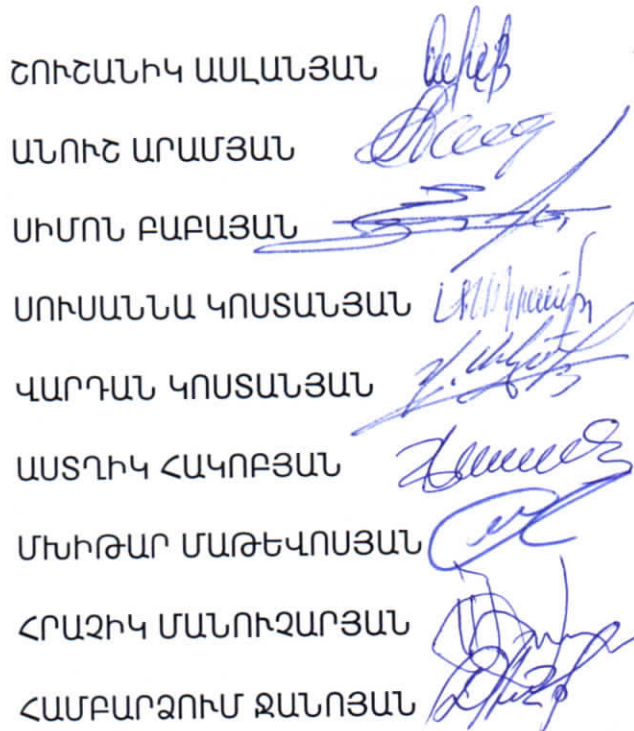 ՇՈՒՇԱՆԻԿ ԱՍԼԱՆՅԱՆ
ԱՆՈՒՇ ԱՐԱՄՅԱՆ
ՍԻՄՈՆ ԲԱԲԱՅԱՆ
ՍՈՒՍԱՆՆԱ ԿՈՍՏԱՆՅԱՆ
ՎԱՐԴԱՆ ԿՈՍՏԱՆՅԱՆ
ԱՍՏՂԻԿ ՀԱԿՈԲՅԱՆ
ՄԽԻԹԱՐ ՄԱԹԵՎՈՍՅԱՆ
ՀՐԱՉԻԿ ՄԱՆՈՒՉԱՐՅԱՆ
ՀԱՄԲԱՐՁՈՒՄ ՋԱՆՈՅԱՆ